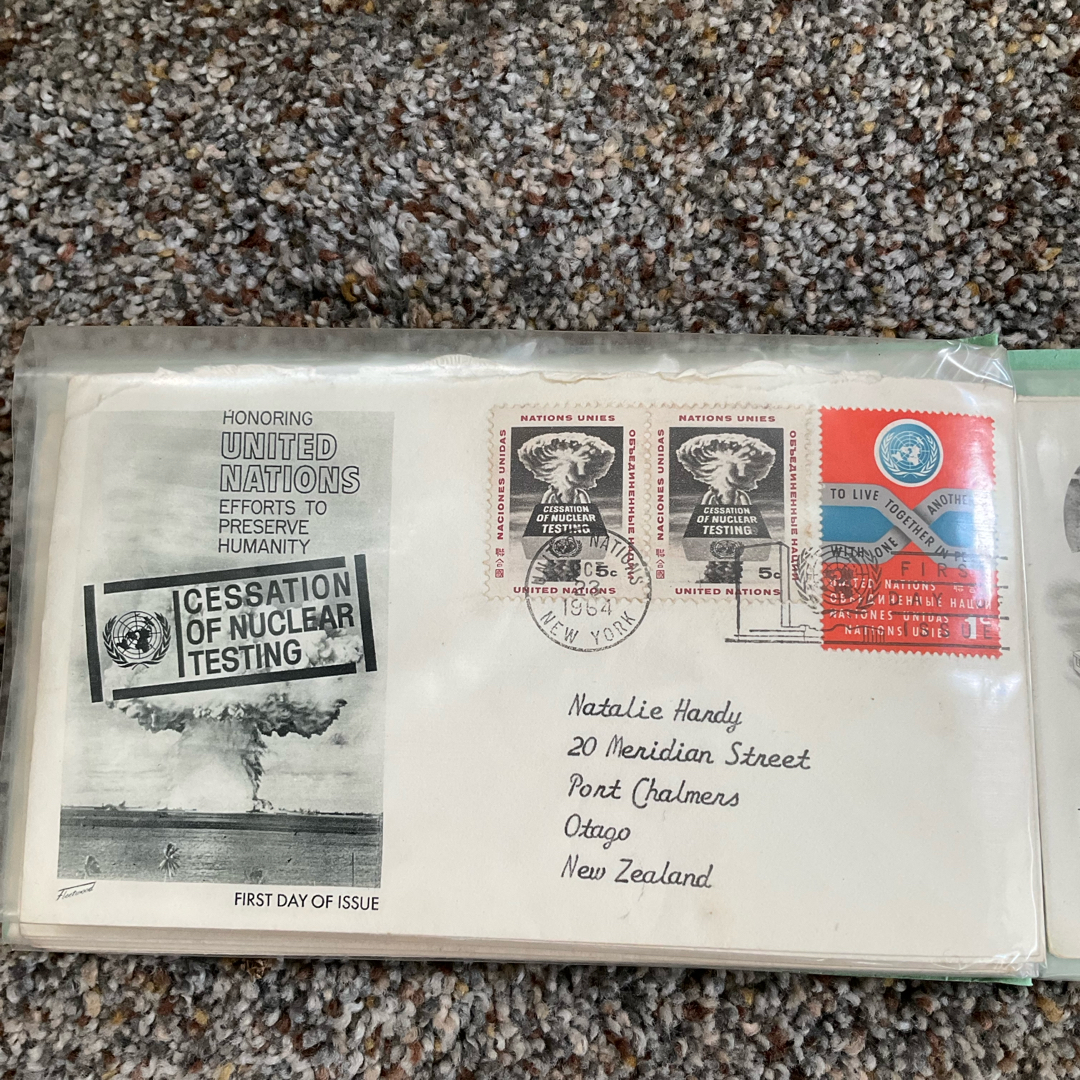 HONORING
UNITED
NATIONS
EFFORTS TO
PRESERVE
HUMANITY
CESSATION
OF NUCLEAR
TESTING
Fleetwood
FIRST DAY OF ISSUE
NATIONS UNIES
NACIONES UNIDAS
ОБЪЕДИНЕННЫЕ НАЦИИ
CESSATION
OF NUCLEAR
TESTING
5c
UNITED NATIONS
NATIONS UNIES
NACIONES UNIDAS
ОБЪЕДИНЕННЫЕ НАЦИИ
CESSATION
OF NUCLEAR
TESTING
5c
UNITED NATIONS
UNITED NATIONS
23
1964
NEW YORK
TO LIVE TOGETHER IN
WITH ONE ANOTHER
UNITED NATIONS
ОБЪЕДИНЕННЫЕ НАЦИИ
NACIONES UNIDAS
NATIONS UNIES
FIRST
DAY OF
ISSUE
Natalie Handy
20 Meridian Street
Port Chalmers
Otago
New Zealand